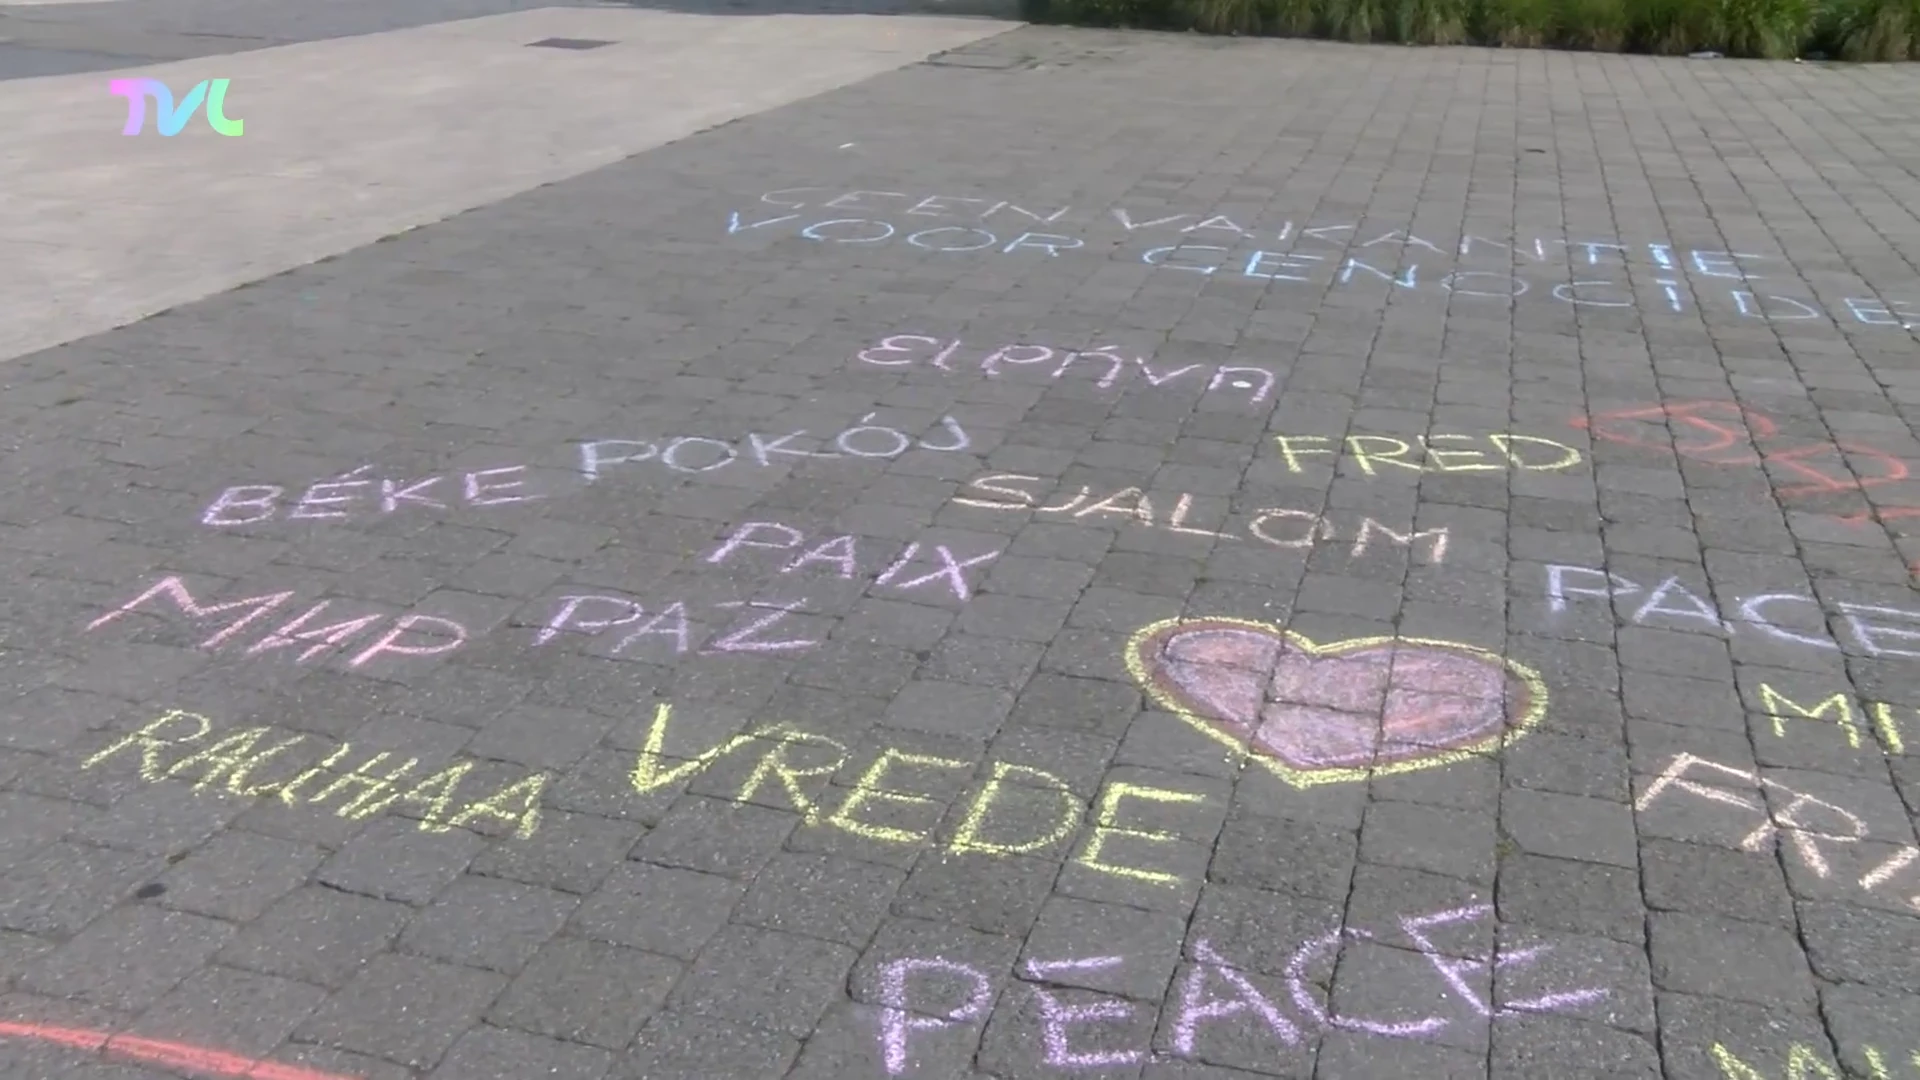 TVL
GEEN VAKANTIE
VOOR GENOCIDE
BÉKE POKÓJ
FRED
SJALOM
PAIX
PACE
МИР PAZ
RAUHAA VREDE
MI
FRI
PEACE